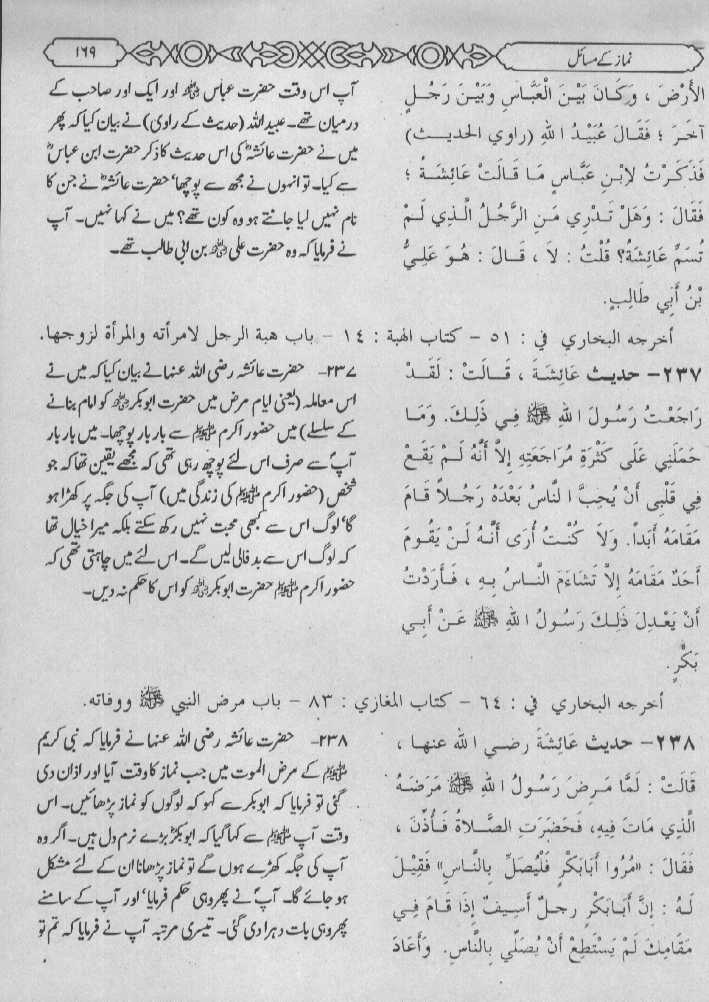 نماز کے مسائل
۱۶۹
الأَرْضَ ، وَكَانَ بَيْنَ الْعَبَّاسِ وَبَيْنَ رَجُلٍ
آخَرَ ؛ فَقَالَ عُبَيْدُ اللهِ (راوي الحديث)
فَذَكَرْتُ لاِبْنِ عَبَّاسٍ مَا قَالَتْ عَائِشَةُ ؛
فَقَالَ : وَهَلْ تَدْرِي مَنِ الرَّجُلُ الَّذِي لَمْ
تُسَمِّ عَائِشَةُ؟ قُلْتُ : لاَ ، قَالَ : هُوَ عَلِيُّ
بْنُ أَبِي طَالِبٍ.
آپ اس وقت حضرت عباس ؓ اور ایک اور صاحب کے
درمیان تھے۔ عبید اللہ (حدیث کے راوی) نے بیان کیا کہ پھر
میں نے حضرت عائشہؓ کی اس حدیث کا ذکر حضرت ابن عباسؓ
سے کیا۔ تو انہوں نے مجھ سے پوچھا‘ حضرت عائشہؓ نے جن کا
نام نہیں لیا جانتے ہو وہ کون تھے؟ میں نے کہا نہیں۔ آپ
نے فرمایا کہ وہ حضرت علی ؓ بن ابی طالب تھے۔
أخرجه البخاري في : ٥١ – كتاب الهبة : ١٤ – باب هبة الرجل لامرأته والمرأة لزوجها.
٢٣٧– حديث عَائِشَةَ ، قَالَتْ : لَقَدْ
رَاجَعْتُ رَسُولَ اللهِ ﷺ فِي ذَلِكَ. وَمَا
حَمَلَنِي عَلَى كَثْرَةِ مُرَاجَعَتِهِ إِلاَّ أَنَّهُ لَمْ يَقَعْ
فِي قَلْبِي أَنْ يُحِبَّ النَّاسُ بَعْدَهُ رَجُلاً قَامَ
مَقَامَهُ أَبَداً. وَلاَ كُنْتُ أُرَى أَنَّهُ لَنْ يَقُومَ
أَحَدٌ مَقَامَهُ إِلاَّ تَشَاءَمَ النَّاسُ بِهِ ، فَأَرَدْتُ
أَنْ يَعْدِلَ ذَلِكَ رَسُولُ اللهِ ﷺ عَنْ أَبِي
بَكْرٍ.
۲۳۷– حضرت عائشہ رضی اللہ عنہا نے بیان کیا کہ میں نے
اس معاملہ (یعنی ایام مرض میں حضرت ابوبکر ؓ کو امام بنانے
کے سلسلے) میں حضور اکرم ﷺ سے بار بار پوچھا۔ میں بار بار
آپؐ سے صرف اس لئے پوچھ رہی تھی کہ مجھے یقین تھا کہ جو
شخص (حضور اکرم ﷺ کی زندگی میں) آپ کی جگہ پر کھڑا ہو
گا‘ لوگ اس سے کبھی محبت نہیں رکھ سکتے بلکہ میرا خیال تھا
کہ لوگ اس سے بد فالی لیں گے۔ اس لئے میں چاہتی تھی کہ
حضور اکرم ﷺ حضرت ابوبکر ؓ کو اس کا حکم نہ دیں۔
أخرجه البخاري في : ٦٤ – كتاب المغازي : ٨٣ – باب مرض النبي ﷺ ووفاته.
٢٣٨– حديث عَائِشَةَ رضي الله عنها ،
قَالَتْ : لَمَّا مَرِضَ رَسُولُ اللهِ ﷺ مَرَضَهُ
الَّذِي مَاتَ فِيهِ، فَحَضَرَتِ الصَّلاَةُ فَأُذِّنَ ،
فَقَالَ : «مُرُوا أَبَابَكْرٍ فَلْيُصَلِّ بِالنَّاسِ» فَقِيلَ
لَهُ : إِنَّ أَبَابَكْرٍ رجلٌ أَسِيفٌ إِذَا قَامَ فِي
مَقَامِكَ لَمْ يَسْتَطِعْ أَنْ يُصَلِّي بِالنَّاسِ. وَأَعَادَ
۲۳۸– حضرت عائشہ رضی اللہ عنہا نے فرمایا کہ نبی کریم
ﷺ کے مرض الموت میں جب نماز کا وقت آیا اور اذان دی
گئی تو فرمایا کہ ابوبکر سے کہو کہ لوگوں کو نماز پڑھائیں۔ اس
وقت آپ ﷺ سے کہا گیا کہ ابوبکرؓ بڑے نرم دل ہیں۔ اگر وہ
آپ کی جگہ کھڑے ہوں گے تو نماز پڑھانا ان کے لئے مشکل
ہو جائے گا۔ آپؐ نے پھر وہی حکم فرمایا‘ اور آپ کے سامنے
پھر وہی بات دہرا دی گئی۔ تیسری مرتبہ آپ نے فرمایا کہ تم تو